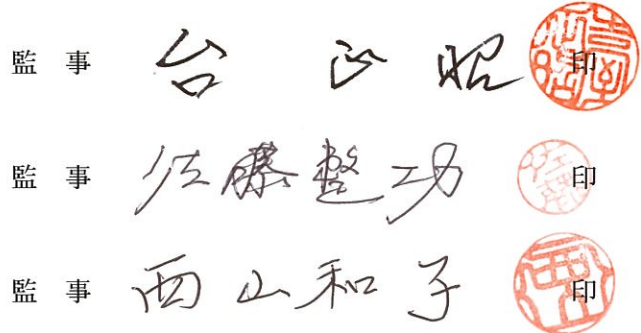 監事 台 正昭 印
監事 佐藤整功 印
監事 西山和子 印